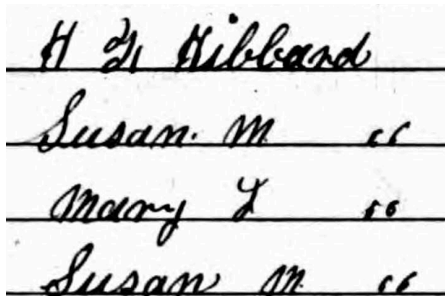 H G Hibbard
Susan. M. "
Mary L "
Susan M. "